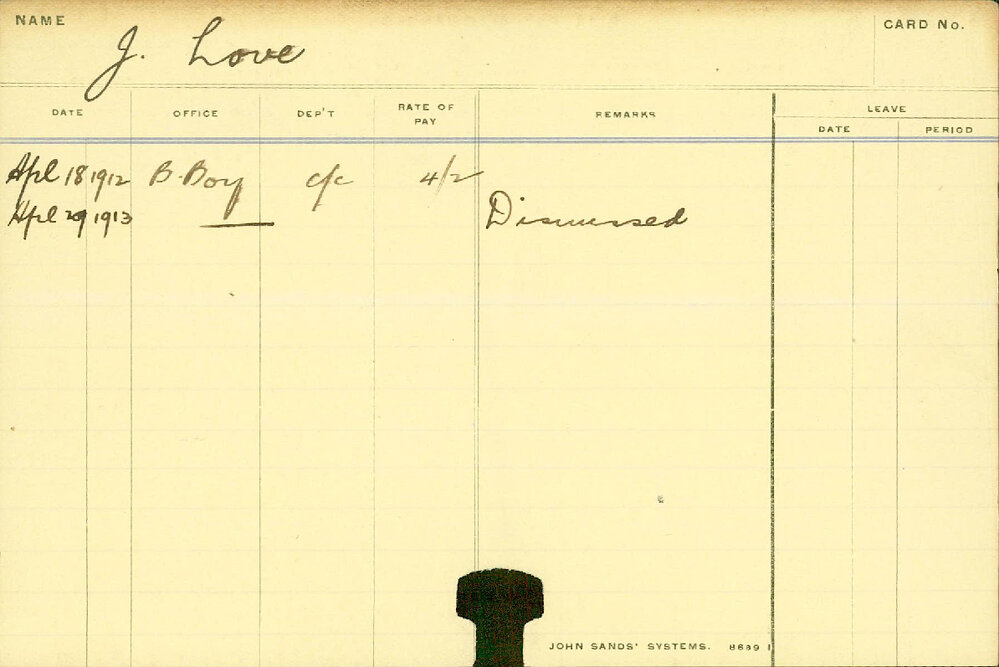 NAME J. Love CARD No.
DATE OFFICE DEP'T RATE OF PAY REMARKS LEAVE
DATE PERIOD
Apl 18 1912 B. Boy c/c 4/2
Apl 29 1913 — Dismissed
JOHN SANDS' SYSTEMS. 8689 1